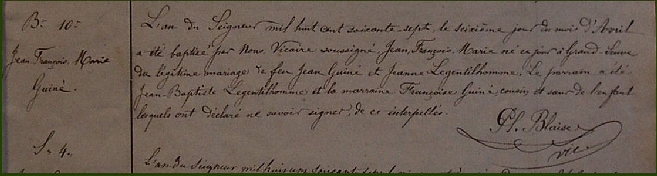 B. 10.
Jean François Marie
Guiné.
L'an du Seigneur mil huit cent soixante sept, le seizième jour du mois d'Avril
a été baptisé par Nous Vicaire soussigné Jean François Marie né ce jour à Grand
du légitime mariage de feu Jean Guiné et Jeanne Legentilhomme. Le parrain a été
Jean Baptiste Legentilhomme et la marraine Françoise Guiné, cousin et sœur de l'enfant
lesquels ont déclaré ne savoir signer, de ce interpellés.
Ph. Blaise
vic
S. 4.
L'an du Seigneur mil huit cent soixante sept